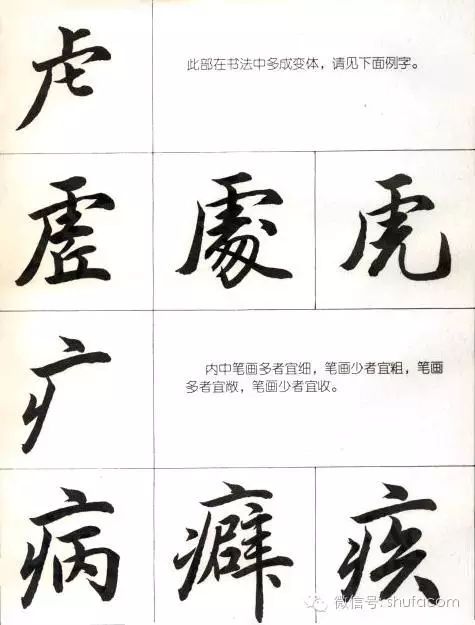 虍
此部在书法中多成变体，请见下面例字。
虚 處 虎
疒
内中笔画多者宜细，笔画少者宜粗，笔画
多者宜敞，笔画少者宜收。
病 癖 疾
微信号: shufacom